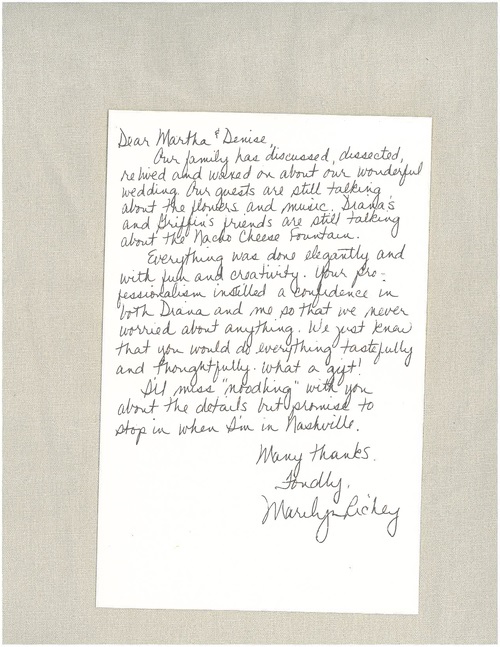 Dear Martha & Denise,
Our family has discussed, dissected,
relived and waxed on about our wonderful
wedding. Our guests are still talking
about the flowers and music. Diana's
and Griffin's friends are still talking
about the Nacho Cheese Fountain.
Everything was done elegantly and
with fun and creativity. Your pro-
fessionalism instilled a confidence in
both Diana and me so that we never
worried about anything. We just knew
that you would do everything tastefully
and thoughtfully. What a gift!
I'll miss "noodling" with you
about the details but promise to
stop in when I'm in Nashville.
Many thanks.
Fondly,
Marilyn Richey